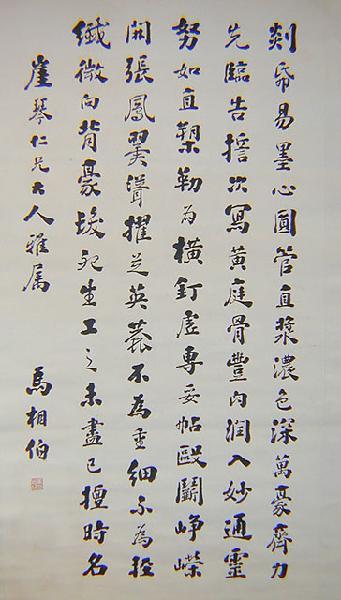 剡帋易墨心圓管直漿濃色深萬豪齊力
先臨告誓次寫黃庭骨豐肉潤入妙通靈
努如直槊勒為橫釘虛專妥帖毆鬭崢嶸
開張鳳翼聳擢芝英麄不為重細不為輕
纖微向背豪髮死生工之未盡已擅時名
崖琴仁兄大人雅属
馬相伯